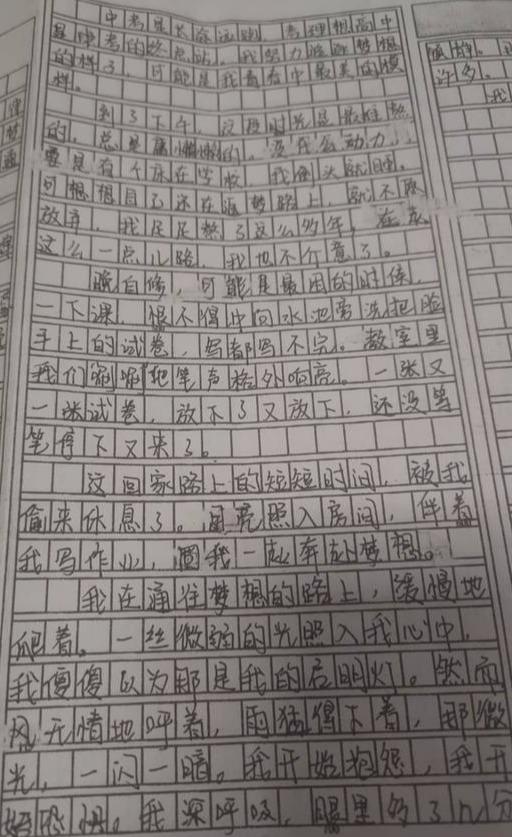 中考是长途远跑，考理想高中
是中考的终点站。我努力追逐梦想
的样子，可能是我青春中最美的模
样。
到了下午，这段时光是最难熬
的，总是懒懒的，没什么动力，
要是有个床在学校，我倒头就睡。
可想想自己还在追梦路上，就不敢
放弃，我足足熬了这么多年，在
这么一点儿路，我也不介意了。
晚自修，可能是最困的时候，
一下课，恨不得冲向水池旁洗把脸
手上的试卷，写都写不完。教室里
我们唰唰把笔声格外响亮。一张又
一张试卷，放下了又放下，还没等
笔停下又来了。
这回家路上的短短时间，被我
偷来休息了。月亮照入房间，伴着
我写作业，圆我一起奔赴梦想。
我在通往梦想的路上，缓慢地
爬着。一丝微弱的光照入我心中，
我傻傻以为那是我的启明灯。然而
风无情地呼着，雨猛得下着，那微
光，一闪一暗。我开始抱怨，我开
始恐惧。我深呼吸，眼里多了几分
许多。
我